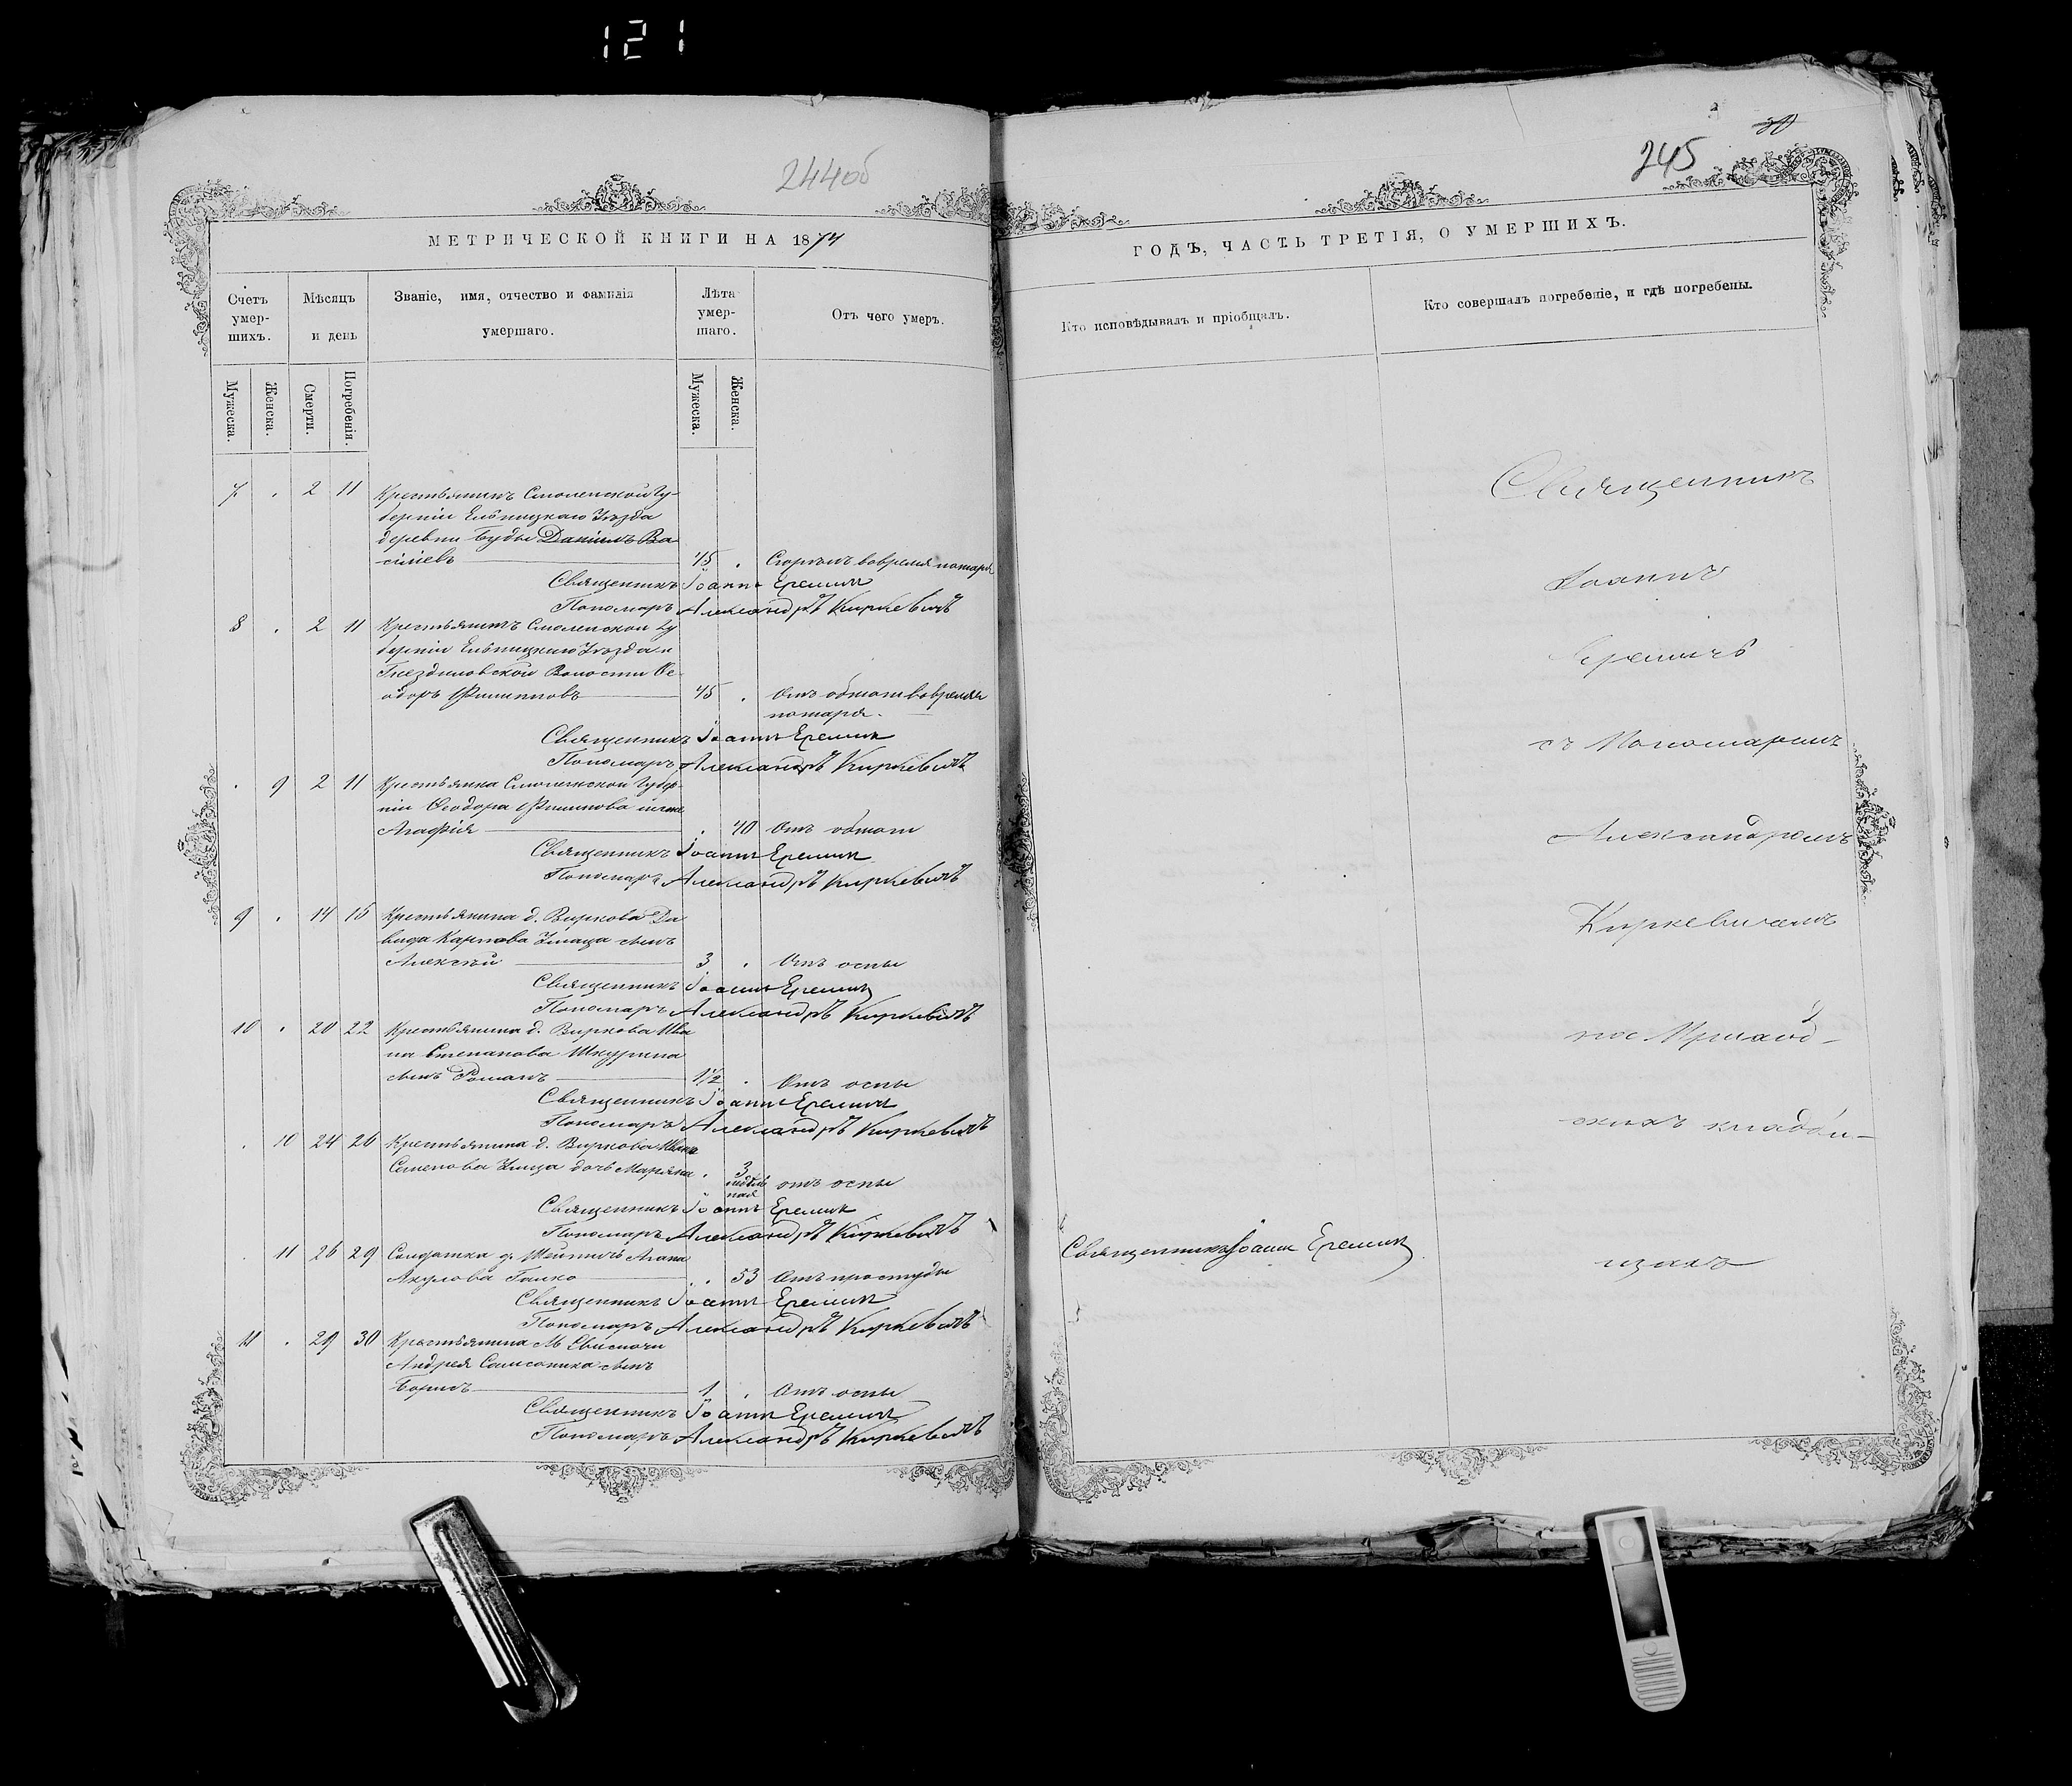 121
244об
МЕТРИЧЕСКОЙ КНИГИ НА 1874
Счетъ умер-шихъ.
Мѣсяцъ и день
Званіе, имя, отчество и фамилія умершаго.
Лѣта умер-шаго.
Отъ чего умеръ.
Мужеска.
Женска.
Смерти.
Погребенія.
Мужеска.
Женска.
7 . 2 11 Крестьянинъ Смоленской Гу-
берніи Ельницкаго Уѣзда
деревни Буды Даніилъ Ва-
силіевъ 45 . Сгорѣлъ вовремя пожара
Священникъ Іоаннъ Еремичъ
Пономарь Александръ Киркевичъ
8 . 2 11 Крестьянинъ Смоленской Гу
берніи Ельницкаго Уѣзда
Волости Ѳе-
одоръ Филипповъ 45 . Отъ обжога вовремя
пожара.
Священникъ Іоаннъ Еремичъ
Пономарь Александръ Киркевичъ
. 9 2 11 Крестьянка Смоленской Губер-
ніи Ѳеодора Филипова жена
Агафія . 40 Отъ обжога
Священникъ Іоаннъ Еремичъ
Пономарь Александръ Киркевичъ
9 . 14 15 Крестьянина д. Виркова Да
вида Карпова сынъ
Алексѣй 3 . Отъ оспы
Священникъ Іоаннъ Еремичъ
Пономарь Александръ Киркевичъ
10 . 20 22 Крестьянина д. Виркова Ива
на Степанова Шкурина
сынъ Романъ 1½ . Отъ оспы
Священникъ Іоаннъ Еремичъ
Пономарь Александръ Киркевичъ
. 10 24 26 Крестьянина д. Виркова Ивана
Семенова дочь Маріяна . 3 отъ оспы
Священникъ Іоаннъ Еремичъ
Пономарь Александръ Киркевичъ
. 11 26 29 Солдатка д.
Акулова Ганко . 53 Отъ простуды
Священникъ Іоаннъ Еремичъ
Пономарь Александръ Киркевичъ
11 . 29 30 Крестьянина М. Свислочи
Андрея Самсоника сынъ
Борисъ 1 . Отъ оспы
Священникъ Іоаннъ Еремичъ
Пономарь Александръ Киркевичъ
245
ГОДЪ, ЧАСТЬ ТРЕТІЯ, О УМЕРШИХЪ.
Кто исповѣдывалъ и пріобщалъ.
Кто совершалъ погребеніе, и гдѣ погребены.
Священникъ
Іоаннъ
Еремичъ
съ Пономаремъ
Александромъ
Киркевичемъ
на Приход-
скихъ кладби-
щахъ
Священникъ Іоаннъ Еремичъ